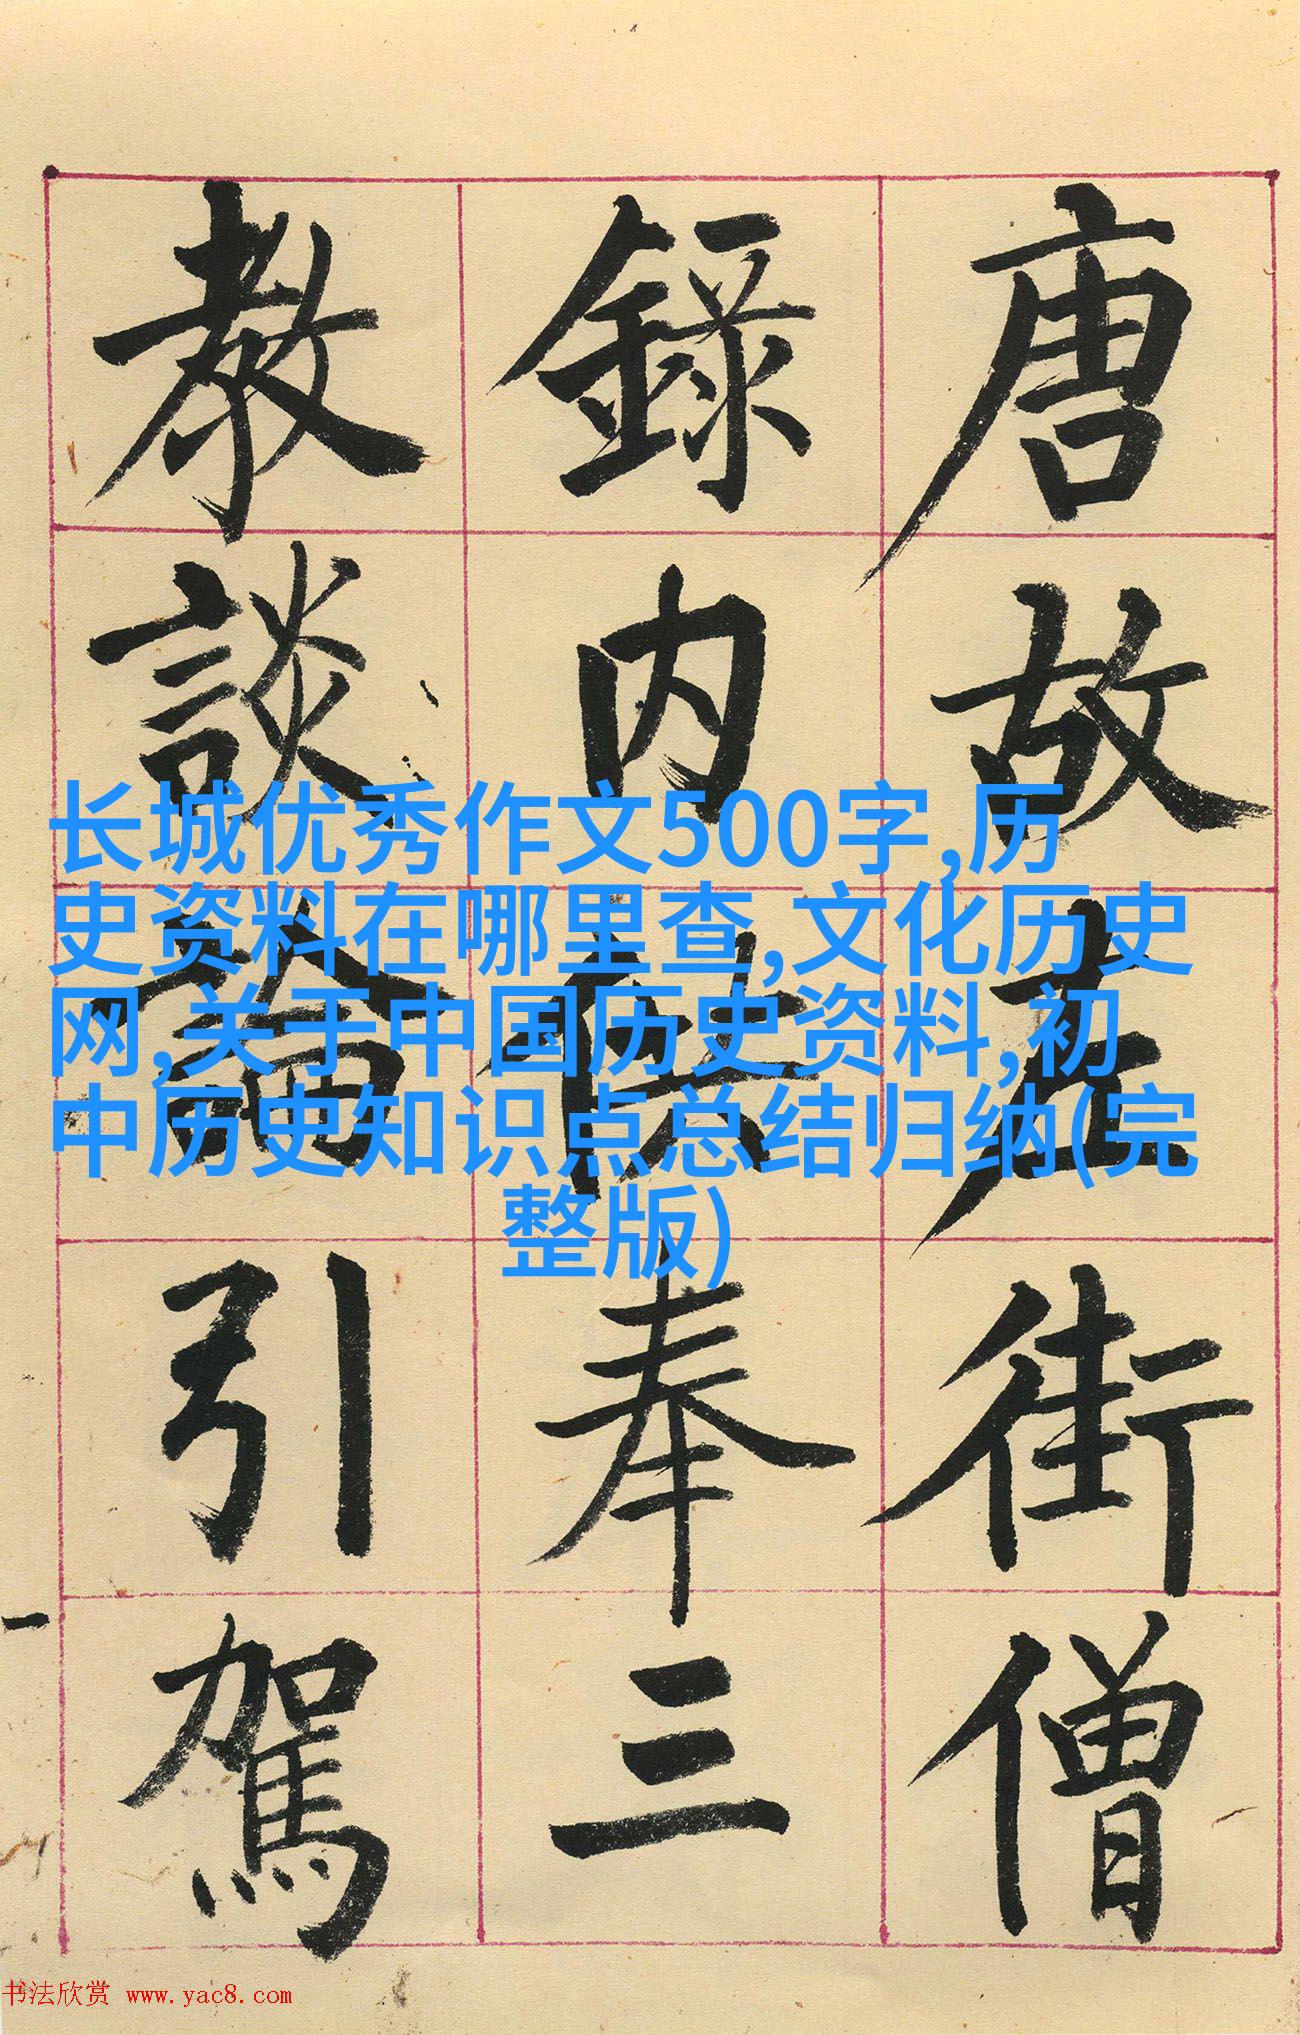 唐故左街僧
錄內供奉三
教談論引駕
长城优秀作文500字,历
史资料在哪里查,文化历史
网,关于中国历史资料,初
中历史知识点总结归纳(完
整版)
书法欣赏 www.yac8.com